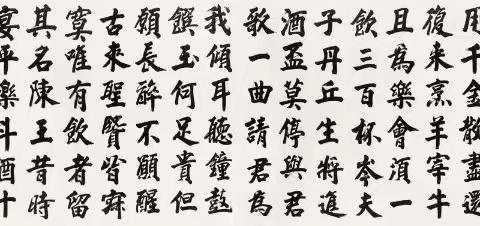 用千金散盡還
復来烹羊宰牛
且為樂會須一
飲三百杯岑夫
子丹丘生將進
酒盃莫停與君
歌一曲請君為
我傾耳聽鐘鼓
饌玉何足貴但
願長醉不願醒
古来聖賢皆寂
寞唯有飲者留
其名陳王昔時
宴平樂斗酒十